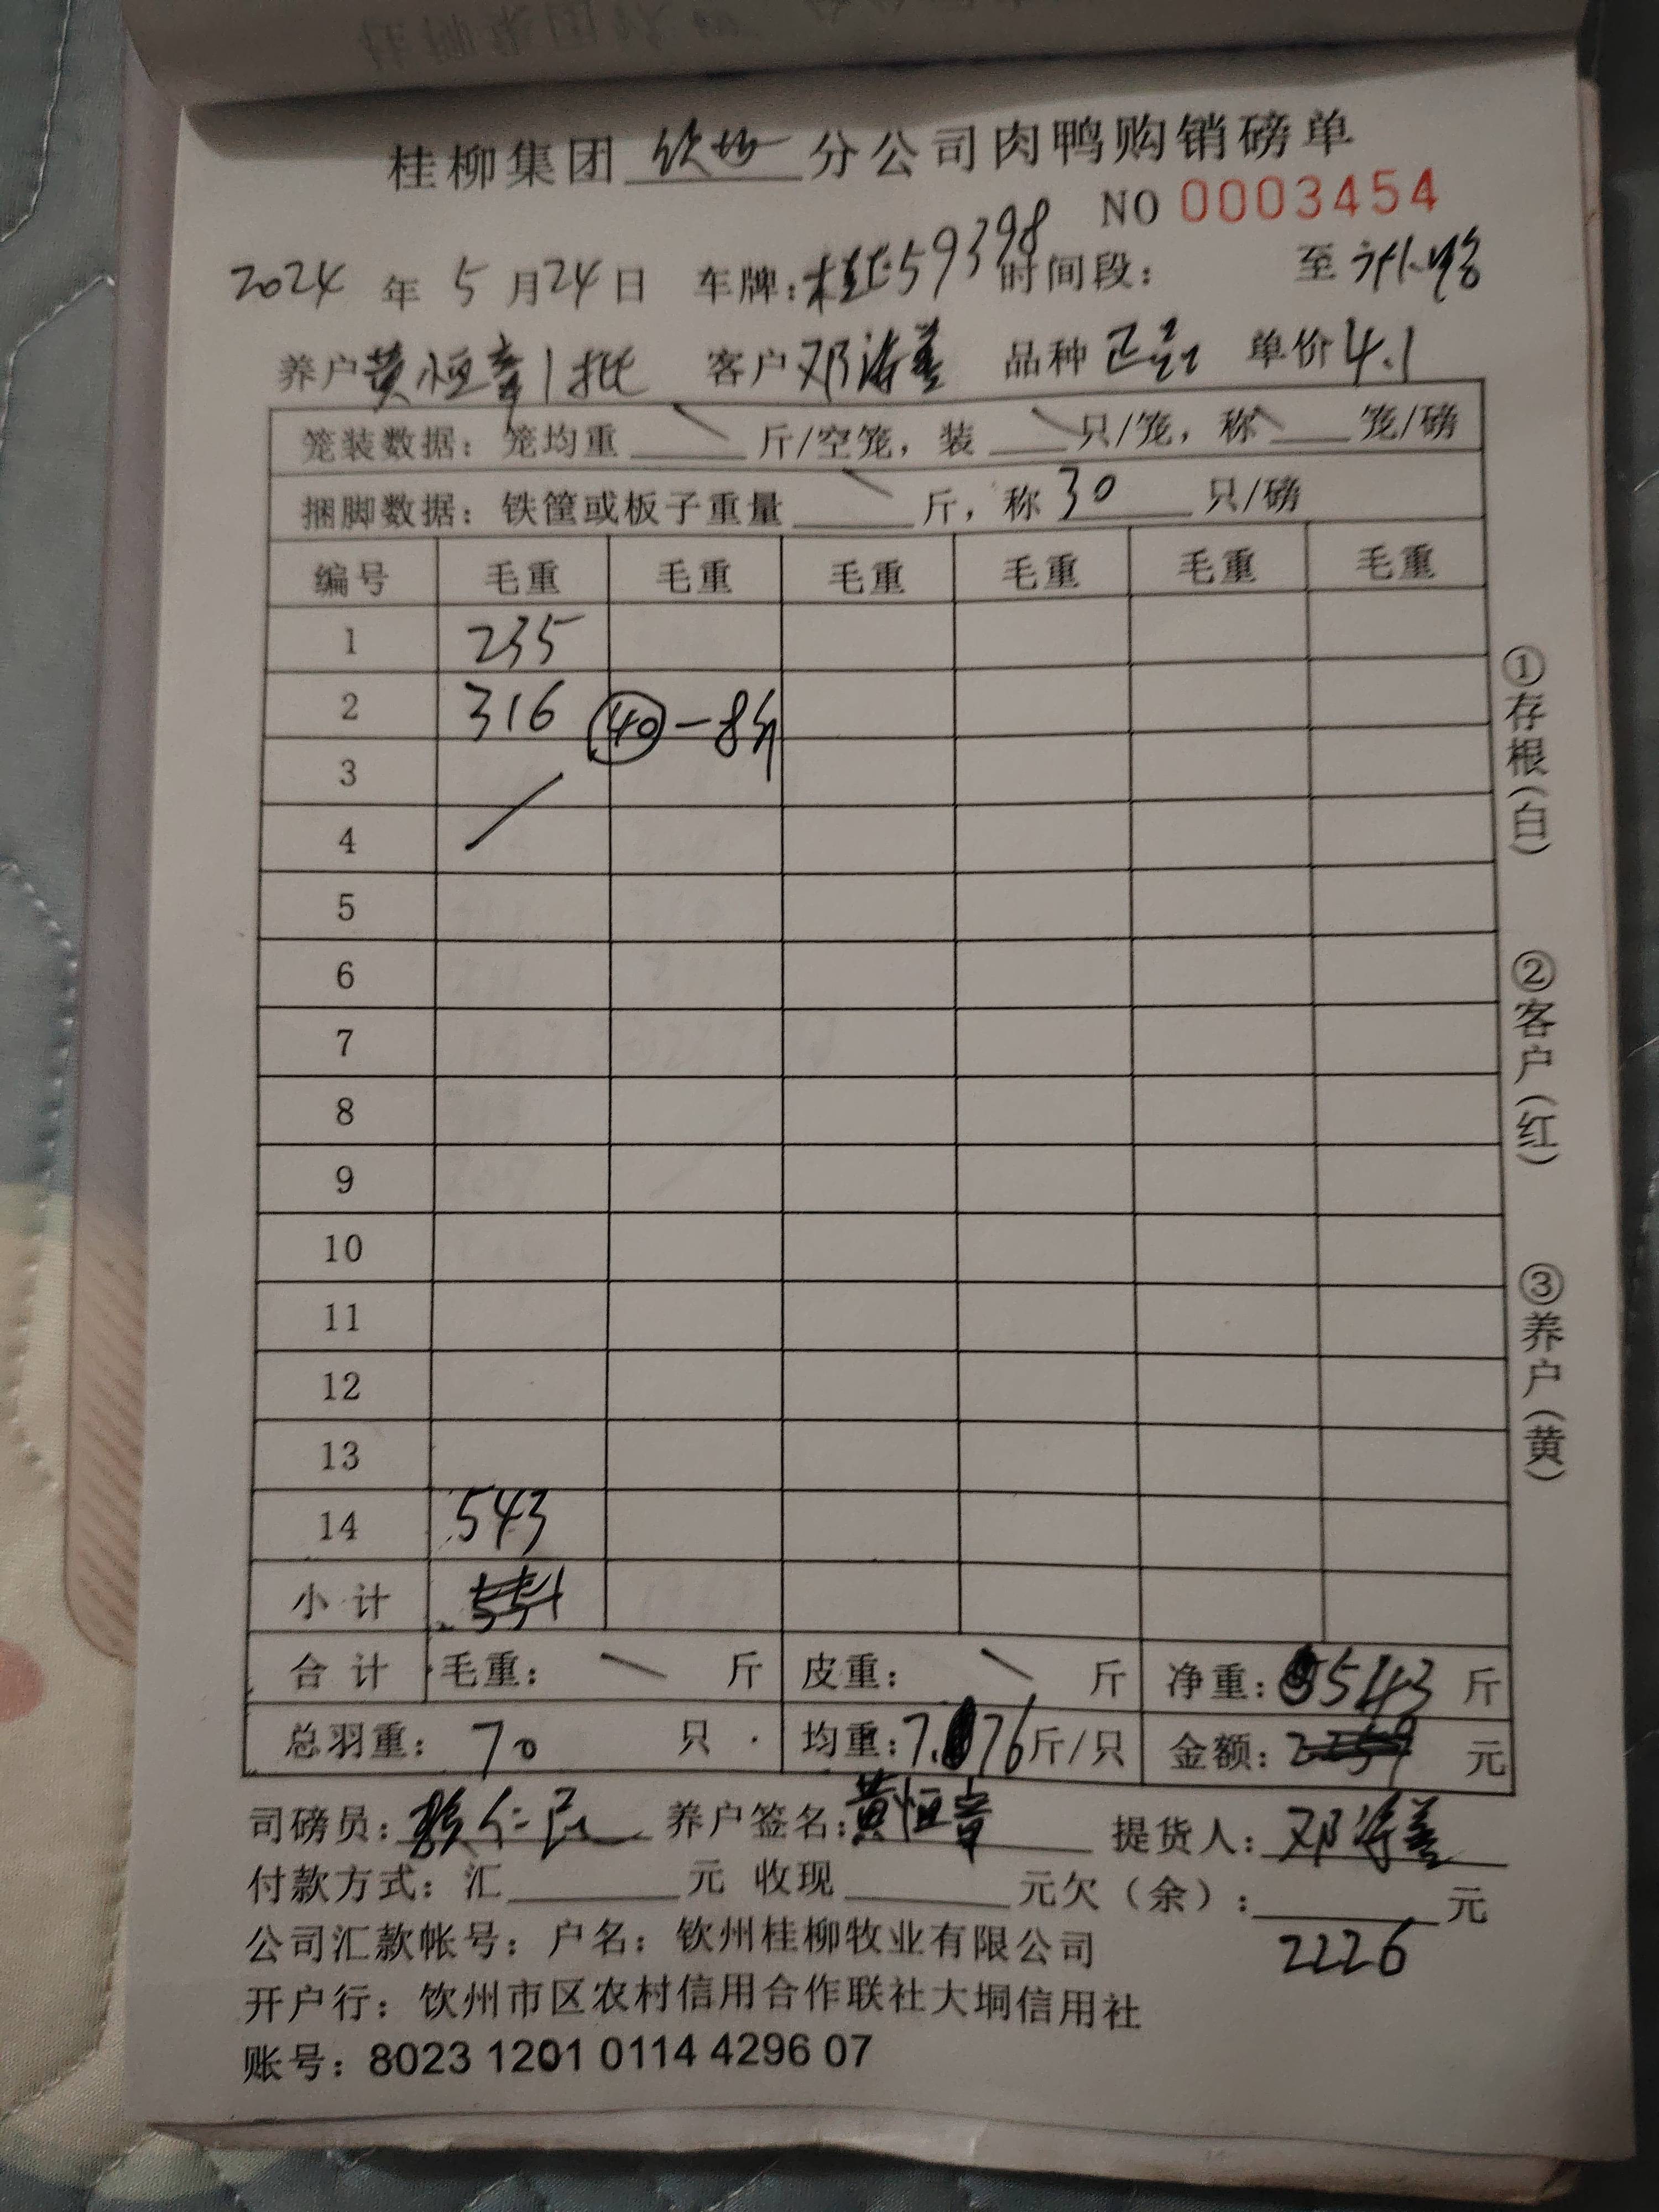 桂柳集团 钦州 分公司肉鸭购销磅单
NO 0003454
2024 年 5 月 24 日 车牌：桂E59398 时间段： 至
养户 黄恒章1批 客户 邓 品种 正品 单价 4.1
笼装数据：笼均重 斤/空笼，装 只/笼，称 笼/磅
捆脚数据：铁筐或板子重量 斤，称 30 只/磅
编号 毛重 毛重 毛重 毛重 毛重 毛重
1 235
2 316 40 -8斤
3
4
5
6
7
8
9
10
11
12
13
14 543
小计 551
合计 毛重： 斤 皮重： 斤 净重：543 斤
总羽重：70 只 均重：7.76 斤/只 金额：2259 元
司磅员： 仁民 养户签名：黄恒章 提货人：邓
付款方式：汇 元 收现 元欠（余）： 元
2226
公司汇款帐号：户名：钦州桂柳牧业有限公司
开户行：钦州市区农村信用合作联社大垌信用社
账号：8023 1201 0114 4296 07
①存根（白）
②客户（红）
③养户（黄）